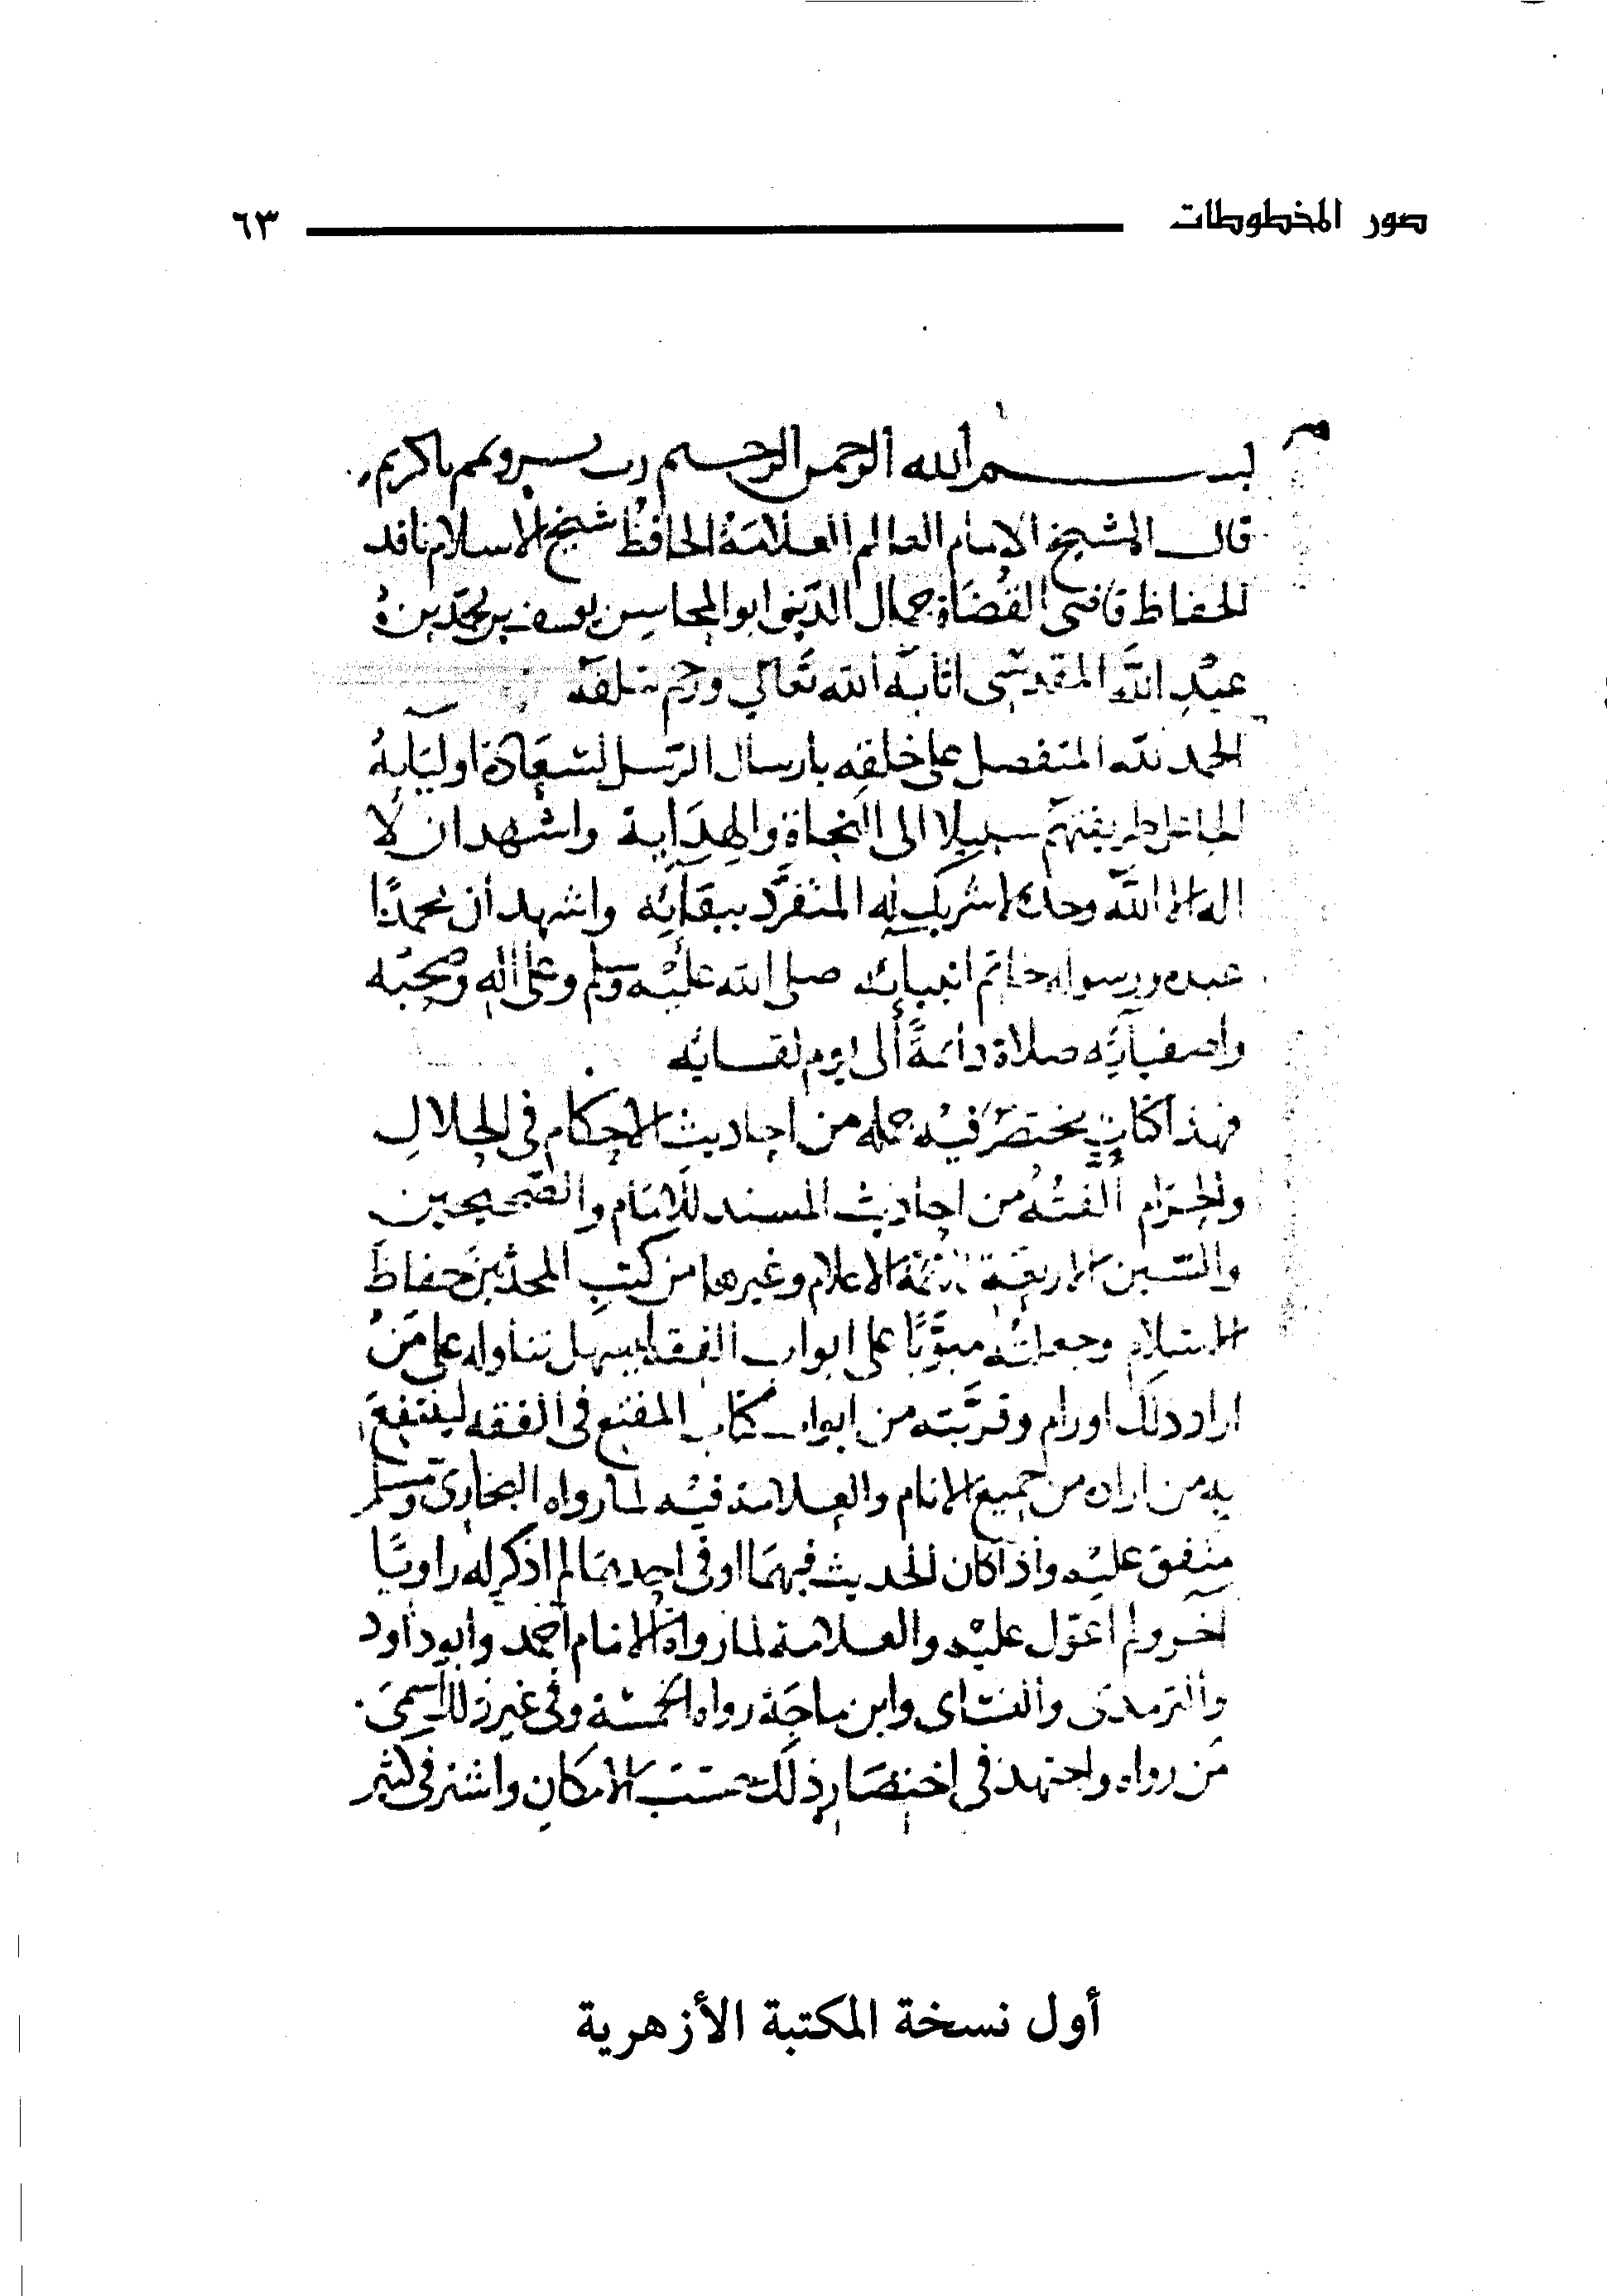 صور المخطوطات ٦٣
بسم الله الرحمن الرحيم رب يسر وتمم ياكريم
قال الشيخ الإمام العالم العلامة الحافظ شيخ الاسلام ناقد
الحفاظ قاضى القضاة جمال الدين ابو المحاسن يوسف بن محمد بن
عبد الله المقدسى اثابه الله تعالى ورحم سلفه
الحمد لله المتفضل على خلقه بارسال الرسل لسعادة اوليايه
الجاعل طريقتهم سبيلا الى النجاة والهداية واشهد ان لا
اله الا الله وحده لا شريك له المتفرد ببقايه واشهد ان محمدا
عبده ورسوله خاتم انبيائه صلى الله عليه وسلم وعلى اله وصحبه
واصفيايه صلاة دائمة الى يوم لقائه
فهذا كتاب مختصر فيه جملة من احاديث الاحكام فى الحلال
والحرام الفته من احاديث المسند للامام والصحيحين
والسنن الاربعة لائمة الاعلام وغيرها من كتب المحدثين حفاظ
الاسلام وجعلته مبوبا على ابواب الفقه ليسهل تناوله على من
اراد ذلك اورام وقربته من ابواب كتاب المقنع فى الفقه لينتفع
به من اراده من جميع الانام والعلامة فيه لما رواه البخارى ومسلم
متفق عليه واذا كان الحديث فيهما او فى احدهما لم اذكر له راويا
آخر ولم اعول عليه والعلامة لما رواه الامام احمد وابو داود
والترمذى والنسائى وابن ماجة رواه الخمسة وفى غير ذلك اسمى
من رواه واجتهد فى اختصار ذلك حسب الامكان واشتر فى
أول نسخة المكتبة الأزهرية